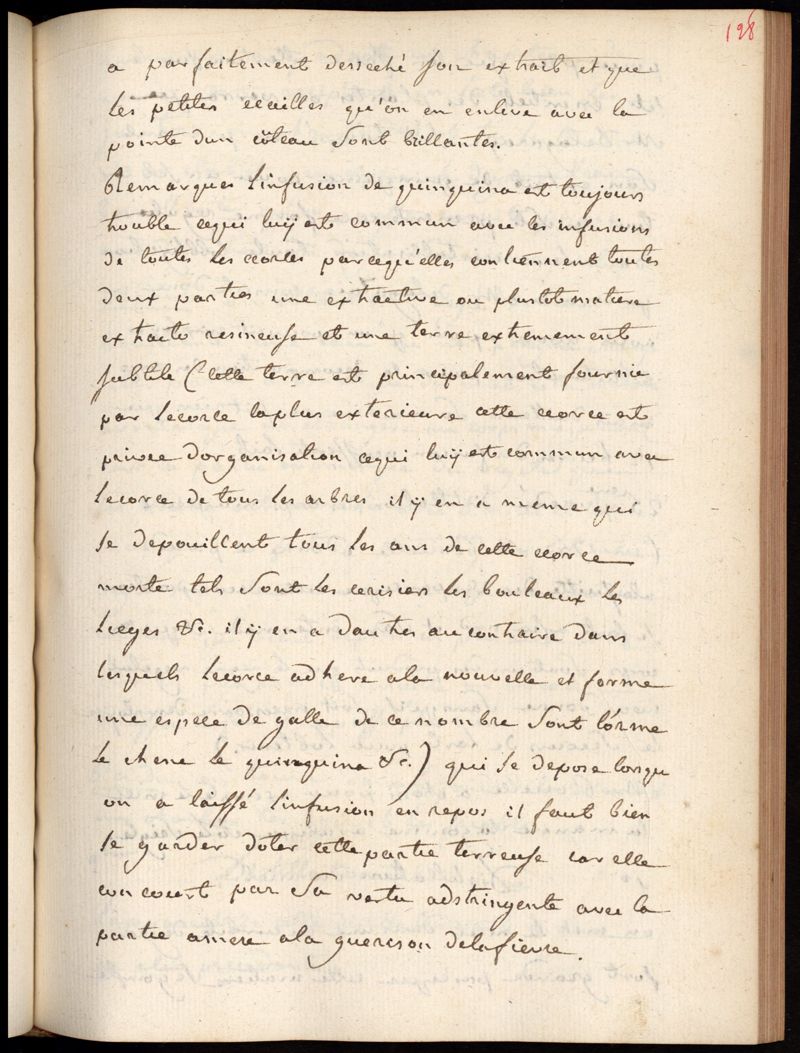 198
a parfaitement desseché son extrait et que
les petites ecailles qu'on en enleve avec la
pointe dun côteau sont brillantes.
Remarques linfusion de quinquina est toujours
trouble cequi luÿ est commun avec les infusions
de toutes les ecorces parcequ'elles contiennent toutes
deux parties une extractive ou plustot matiere
extracto resineuse et une terre extremement
subtile (cette terre est principalement fournie
par lecorce laplus exterieure cette ecorce est
privée dorganisation cequi luÿ est commun avec
lecorce de tous les arbres il ÿ en a même qui
se depouillent tous les ans de cette ecorce
morte tels sont les cerisiers les bouleaux les
lieges &c. il ÿ en a dautres aucontraire dans
lesquels lecorce adhere ala nouvelle et forme
une espece de galle de ce nombre sont l'orme
le chene le quinquina &c.) qui se depose lorsqu
on a laissé linfusion en repos il faut bien
se garder doter cette partie terreuse car elle
concourt par sa vertu adstringente avec la
partie amere ala guerison delafievre.